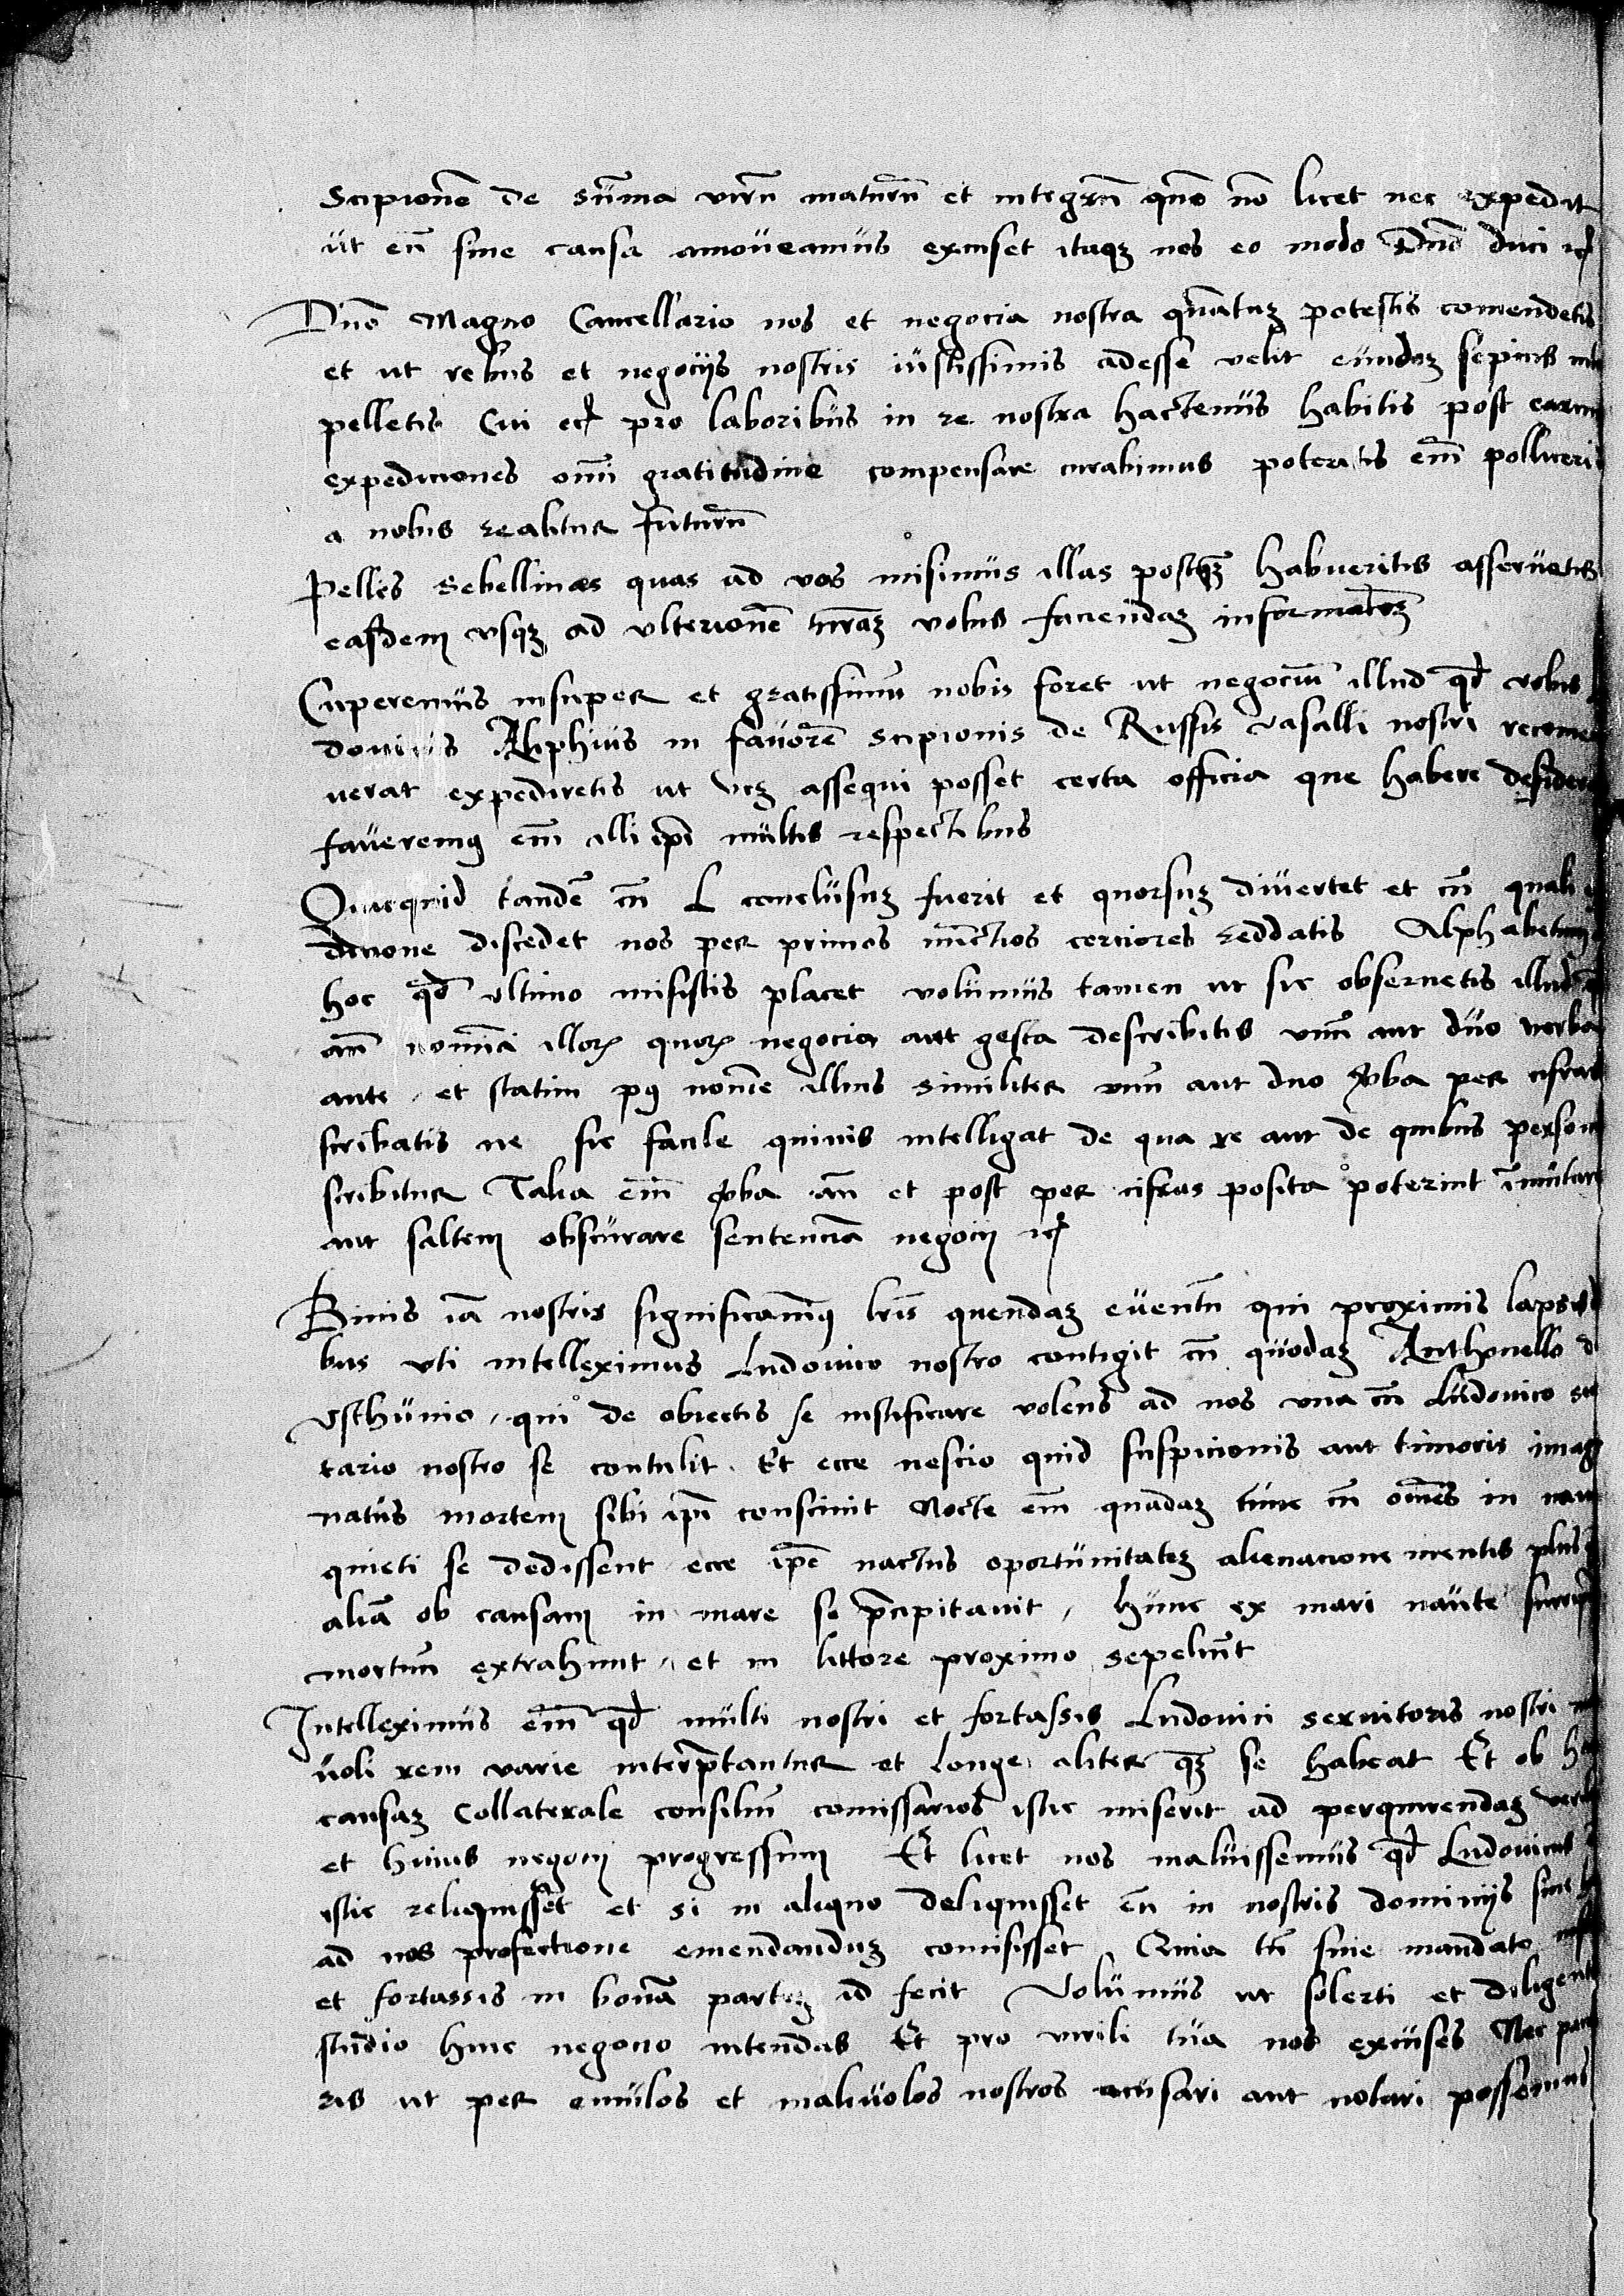 Scipionē de Sūma virū maturū et integrū quō nō licet nec expedit
ut eū sine causa amoueamus excuset itaqz nos eo modo Dnō duci
Dnō Magno Cancellario nos et negocia nostra quātuz potestis comendetis
et ut rebus et negociis nostris iustissimis adesse velit eundez sepius
pelletis Cui pro laboribus in re nostra hactenus habitis post earum
expediciones omī gratitudine compensare curabimus poteritis em̄ polliceri
a nobis realiter futurū
Pelles Sebellinas quas ad vos misimus illas postqz habueritis asseruetis
easdem vsqz ad vlteriorē nrāz vobis faciendaz informatōz
Cuperemus insuper et gratissimū nobis foret ut negociū illud qd vobis
dominus Aliphius in fauorē Scipionis de Russis vasalli nostri
uerat expediretis ut assequi posset certa officia que habere
faueremq em̄ illi ipi multis respectibus
Quicquid tandē cū L conclusuz fuerit et quorsuz diuertet et cū quali
dicione discedet nos per primos nūctios certiores reddatis Alphabetum
hoc qd vltimo misistis placet volumus tamen ut sic obseruetis illud
an̄ nomīa illorz quorz negocia aut gesta describitis vnū aut duo verba
ante et statim pq nomē illius similiter vnū aut duo vba per cifras
scribatis ne sic facile quiuis intelligat de qua re aut de quibus
scribitur Talia em̄ vba an̄ et post per cifras posita poterint īmutare
aut saltem obscurare sentenciā negocii
Binis iā nostris significauimq lrīs quendaz euentū qui proximis
bus vti intelleximus Ludouico nostro contigit cū quodaz Anthonello
Vsthunio qui de obiectis se iustificare volens ad nos vna cū Ludouico
tario nostro se contulit Et ecce nescio quid suspicionis aut timoris
natus mortem sibi ipī consciuit Nocte em̄ quadaz tunc cū omēs in
quieti se dedissent ecce ipē nactus oportunitatez alienacione mentis plus
aliā ob causam in mare se p̄cipitauit Hunc ex mari naute
mortuū extrahunt et in littore proximo sepeliūt
Intelleximus em̄ qd multi nostri et fortassis Ludouici seruitoris nostri
uoli rem varie interp̄tantur et longe aliter qz se habeat Et ob
causaz Collaterale consiliū comissarios istic miserit ad perquirendaz
et huius negocii progressum Et licet nos maluissemus qd Ludouicus
istic reliquisset et si in aliquo deliquisset eū in nostris dominiis sine
ad nos profectione emendanduz comisisset Quia tn̄ sine mandato
et fortassis in bonā partez id fecit Volumus ut solerti et diligenti
studio huic negocio intendas Et pro virili tua nos excuses Nec
ris ut per emulos et maliuolos nostros acusari aut notari possemus